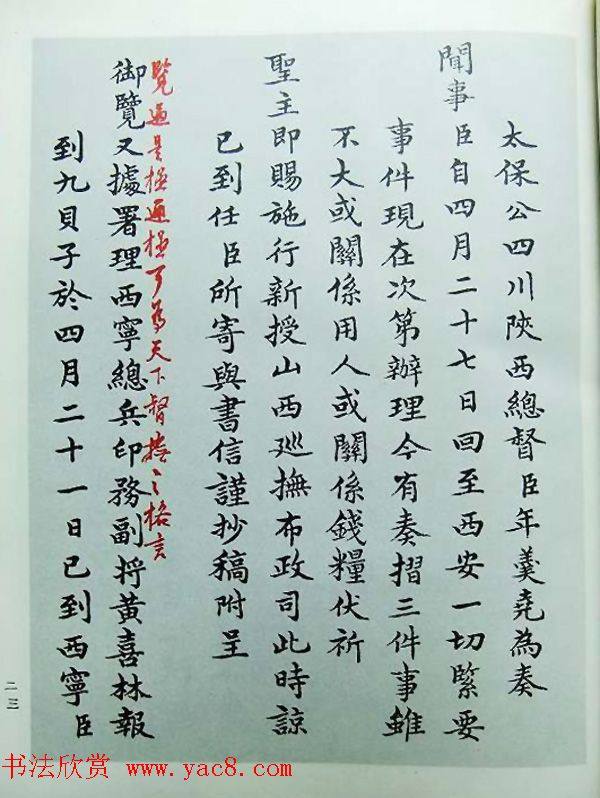 太保公四川陝西總督臣年羹堯為奏
聞事臣自四月二十七日回至西安一切緊要
事件現在次第辦理今有奏摺三件事雖
不大或關係用人或關係錢糧伏祈
聖主即賜施行新授山西巡撫布政司此時諒
已到任臣所寄與書信謹抄稿附呈
覽過是極通極了為天下督撫之格言
御覽又據署理西寧總兵印務副將黃喜林報
到九貝子於四月二十一日已到西寧臣
二三
书法欣赏 www.yac8.com